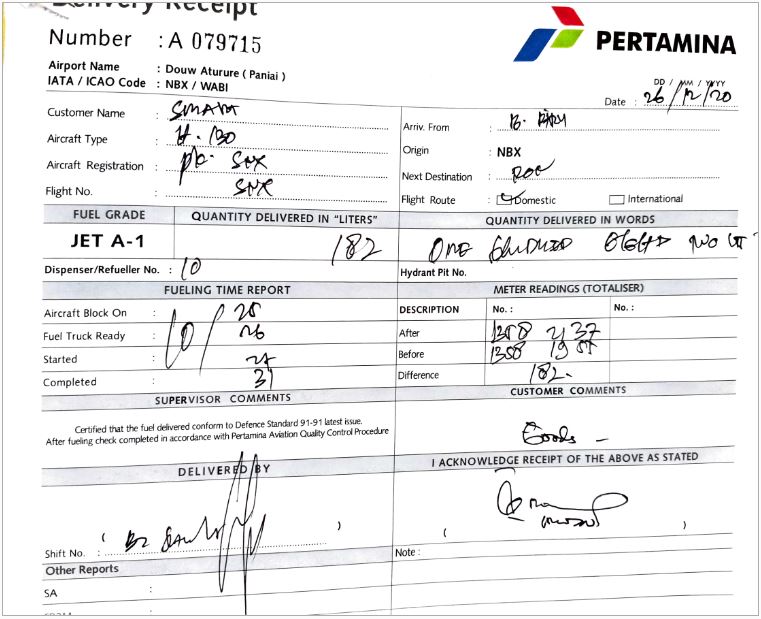 Delivery Receipt
Number : A 079715
PERTAMINA
Airport Name : Douw Aturure ( Paniai )
IATA / ICAO Code : NBX / WABI
DD / MM / YYYY
Date : 26/12/20
Customer Name :
Aircraft Type :
Aircraft Registration : PK-
Flight No. :
Arriv. From :
Origin : NBX
Next Destination :
Flight Route : Domestic International
FUEL GRADE QUANTITY DELIVERED IN "LITERS" QUANTITY DELIVERED IN WORDS
JET A-1 182 ONE
Dispenser/Refueller No. : 10 Hydrant Pit No.
FUELING TIME REPORT METER READINGS (TOTALISER)
Aircraft Block On : 25
Fuel Truck Ready : 26
Started : 27
Completed : 31
10
DESCRIPTION No. : No. :
After 1358 2137
Before 1358
Difference 182.
SUPERVISOR COMMENTS CUSTOMER COMMENTS
Certified that the fuel delivered conform to Defence Standard 91-91 latest issue.
After fueling check completed in accordance with Pertamina Aviation Quality Control Procedure
Goods -
DELIVERED BY I ACKNOWLEDGE RECEIPT OF THE ABOVE AS STATED
( ) ( )
Shift No. : Note :
Other Reports
SA :